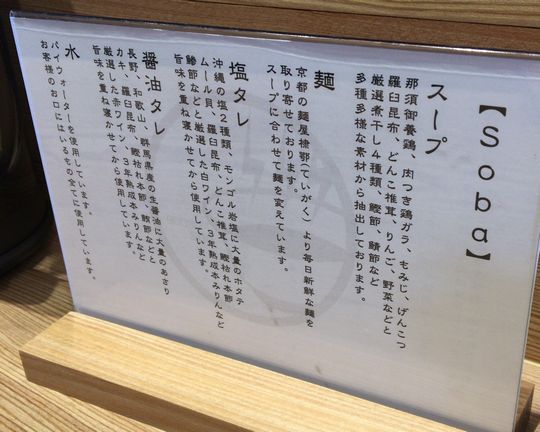 【Soba】
スープ
那須御養鶏、肉つき鶏ガラ、もみじ、げんこつ
羅臼昆布、どんこ椎茸、りんご、野菜などと
厳選煮干し4種類、鰹節、鯖節など
多種多様な素材から抽出しております。
麺
京都の麺屋棣鄂(ていがく)より毎日新鮮な麺を
取り寄せております。
スープに合わせて麺を変えています。
塩タレ
沖縄の塩2種類、モンゴル岩塩に大量のホタテ
ムール貝、羅臼昆布、どんこ椎茸、鰹枯れ本節
鯵節などと厳選した白ワイン、3年熟成本みりんなど
旨味を重ね寝かせてから使用しています。
醤油タレ
長野、和歌山、群馬県産の生醤油に大量のあさり
カキ、羅臼昆布、鰹枯れ本節、鮪節などと
厳選した赤ワイン、3年熟成本みりんなど
旨味を重ね寝かせてから使用しています。
水
パイウォーターを使用しています。
お客様のお口にはいるもの全てに使用しています。